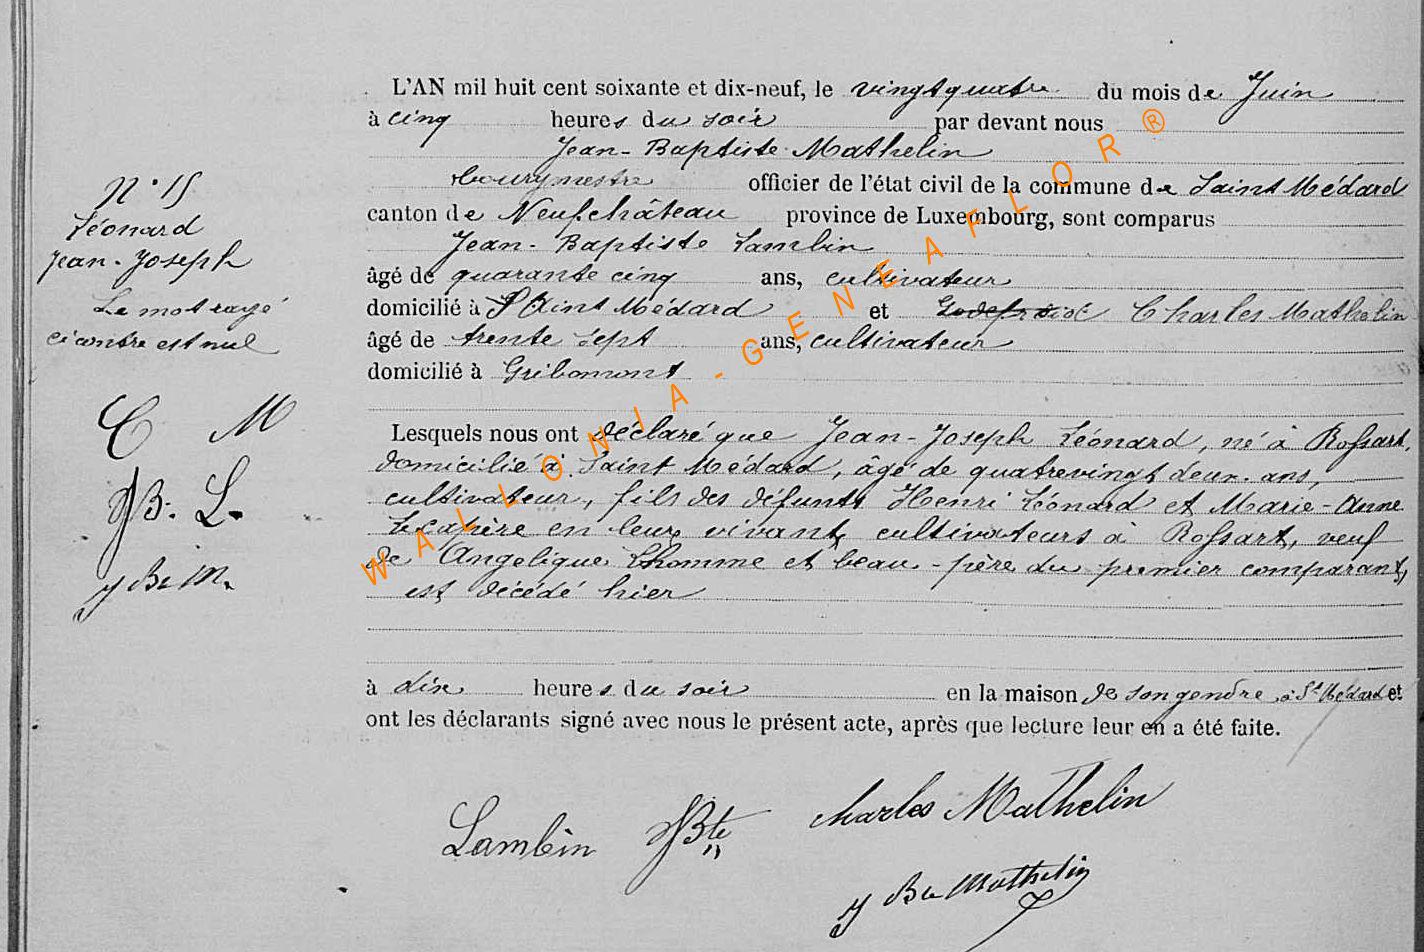 N° 15
Léonard
Jean-Joseph
Le mot rayé
ci contre est nul
C M
JB. L.
J Bte M.
L'AN mil huit cent soixante et dix-neuf, le vingt quatre du mois de Juin
à cinq heures du soir par devant nous
Jean-Baptiste Mathelin
bourgmestre officier de l'état civil de la commune de Saint Médard
canton de Neufchâteau province de Luxembourg, sont comparus
Jean-Baptiste Lambin
âgé de quarante cinq ans, cultivateur
domicilié à Saint Médard et Godefroid Charles Mathelin
âgé de trente sept ans, cultivateur
domicilié à Gribomont
Lesquels nous ont déclaré que Jean-Joseph Léonard, né à Rossart,
domicilié à Saint Médard, âgé de quatrevingt deux ans,
cultivateur, fils des défunts Henri Léonard et Marie-Anne
en leur vivant cultivateurs à Rossart, veuf
de Angelique Lhomme et beau-père du premier comparant,
est décédé hier
à dix heures du soir en la maison de son gendre à St Médard et
ont les déclarants signé avec nous le présent acte, après que lecture leur en a été faite.
Lambin JBte Charles Mathelin
J Bte Mathelin
WALLONIA-GENEAFLOR®